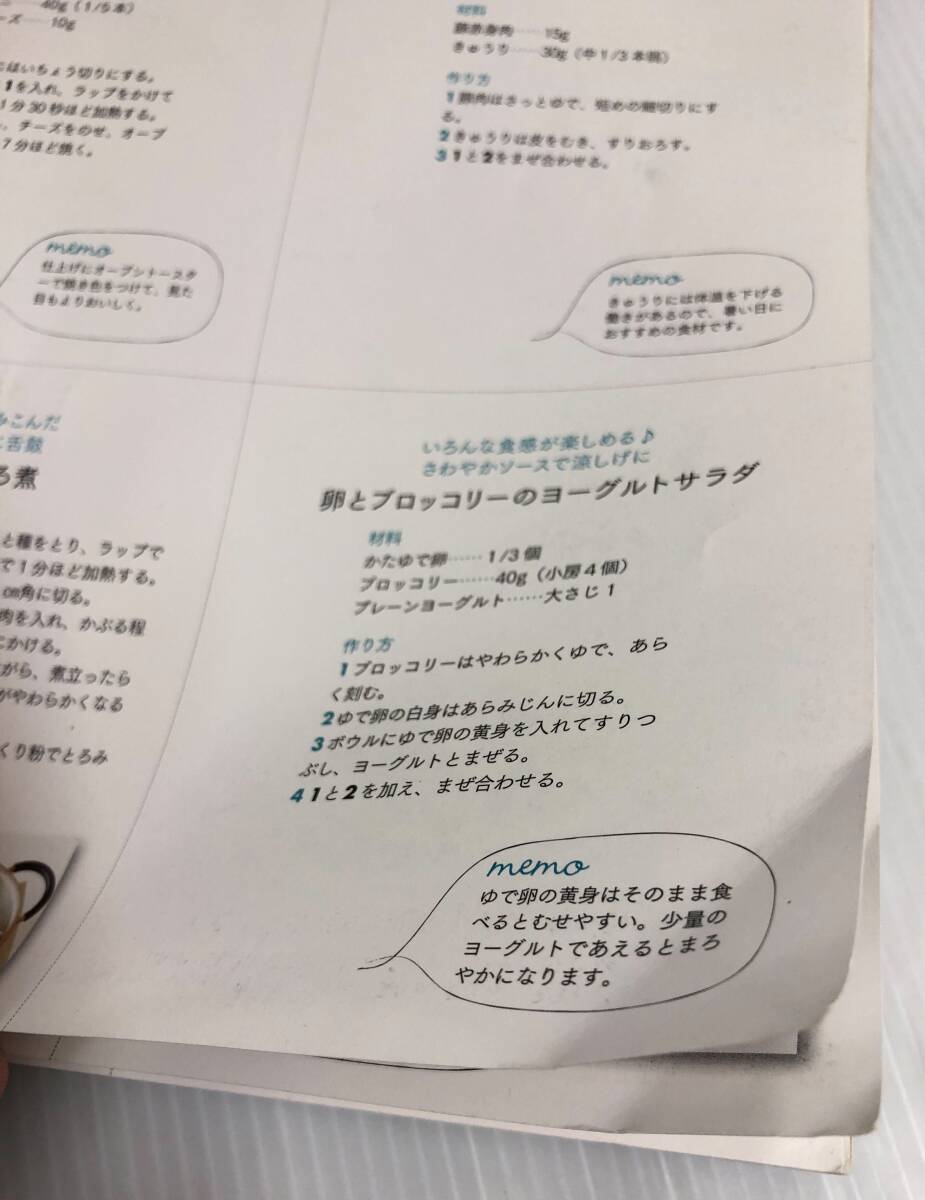 40g（1/5本）
ーズ……10g
にはいちょう切りにする。
1を入れ、ラップをかけて
1分30秒ほど加熱する。
、チーズをのせ、オーブ
7分ほど焼く。
memo
仕上げにオーブントースタ
ーで焼き色をつけて、見た
目もよりおいしく。
材料
豚赤身肉……15g
きゅうり……30g（中1/3本弱）
作り方
1 豚肉はさっとゆで、短めの細切りにす
る。
2 きゅうりは皮をむき、すりおろす。
3 1と2をまぜ合わせる。
memo
きゅうりには体温を下げる
働きがあるので、暑い日に
おすすめの食材です。
みこんだ
舌鼓
る煮
と種をとり、ラップで
で1分ほど加熱する。
cm角に切る。
肉を入れ、かぶる程
にかける。
ながら、煮立ったら
がやわらかくなる
くり粉でとろみ
いろんな食感が楽しめる♪
さわやかソースで涼しげに
卵とブロッコリーのヨーグルトサラダ
材料
かたゆで卵……1/3個
ブロッコリー……40g（小房4個）
プレーンヨーグルト……大さじ1
作り方
1 ブロッコリーはやわらかくゆで、あら
く刻む。
2 ゆで卵の白身はあらみじんに切る。
3 ボウルにゆで卵の黄身を入れてすりつ
ぶし、ヨーグルトとまぜる。
4 1と2を加え、まぜ合わせる。
memo
ゆで卵の黄身はそのまま食
べるとむせやすい。少量の
ヨーグルトであえるとまろ
やかになります。